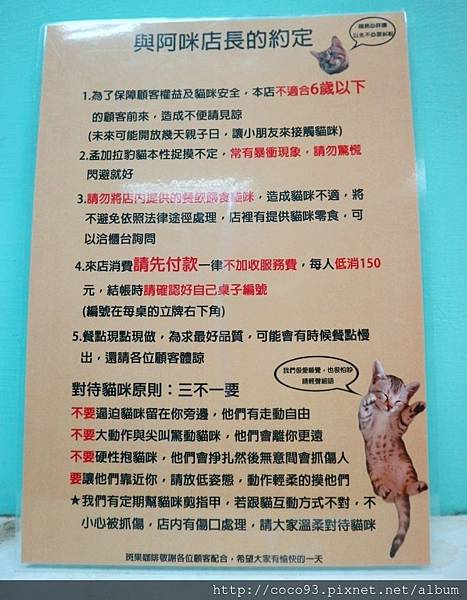 與阿咪店長的約定
請務必詳讀
以免不必要糾紛
1.為了保障顧客權益及貓咪安全，本店不適合6歲以下
的顧客前來，造成不便請見諒
(未來可能開放幾天親子日，讓小朋友來接觸貓咪)
2.孟加拉豹貓本性捉摸不定，常有暴衝現象，請勿驚慌
閃避就好
3.請勿將店內提供的餐飲餵食貓咪，造成貓咪不適，將
不避免依照法律途徑處理，店裡有提供貓咪零食，可
以洽櫃台詢問
4.來店消費請先付款一律不加收服務費，每人低消150
元，結帳時請確認好自己桌子編號
(編號在每桌的立牌右下角)
5.餐點現點現做，為求最好品質，可能會有時候餐點慢
出，還請各位顧客體諒
我們很愛睡覺，也很怕吵
請輕聲細語
對待貓咪原則：三不一要
不要逼迫貓咪留在你旁邊，他們有走動自由
不要大動作與尖叫驚動貓咪，他們會離你更遠
不要硬性抱貓咪，他們會掙扎然後無意間會抓傷人
要讓他們靠近你，請放低姿態，動作輕柔的摸他們
★我們有定期幫貓咪剪指甲，若跟貓互動方式不對，不
小心被抓傷，店內有傷口處理，請大家溫柔對待貓咪
斑果咖啡敬謝各位顧客配合，希望大家有愉快的一天
http://coco93.pixnet.net/album